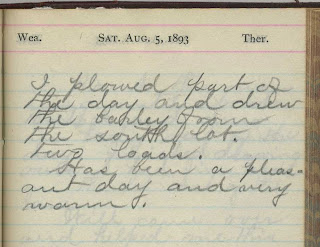 Wea. SAT. AUG. 5, 1893 Ther.
I plowed part of
the day and drew
the barley from
the south lot.
two loads.
Has been a pleas-
ant day and very
warm.